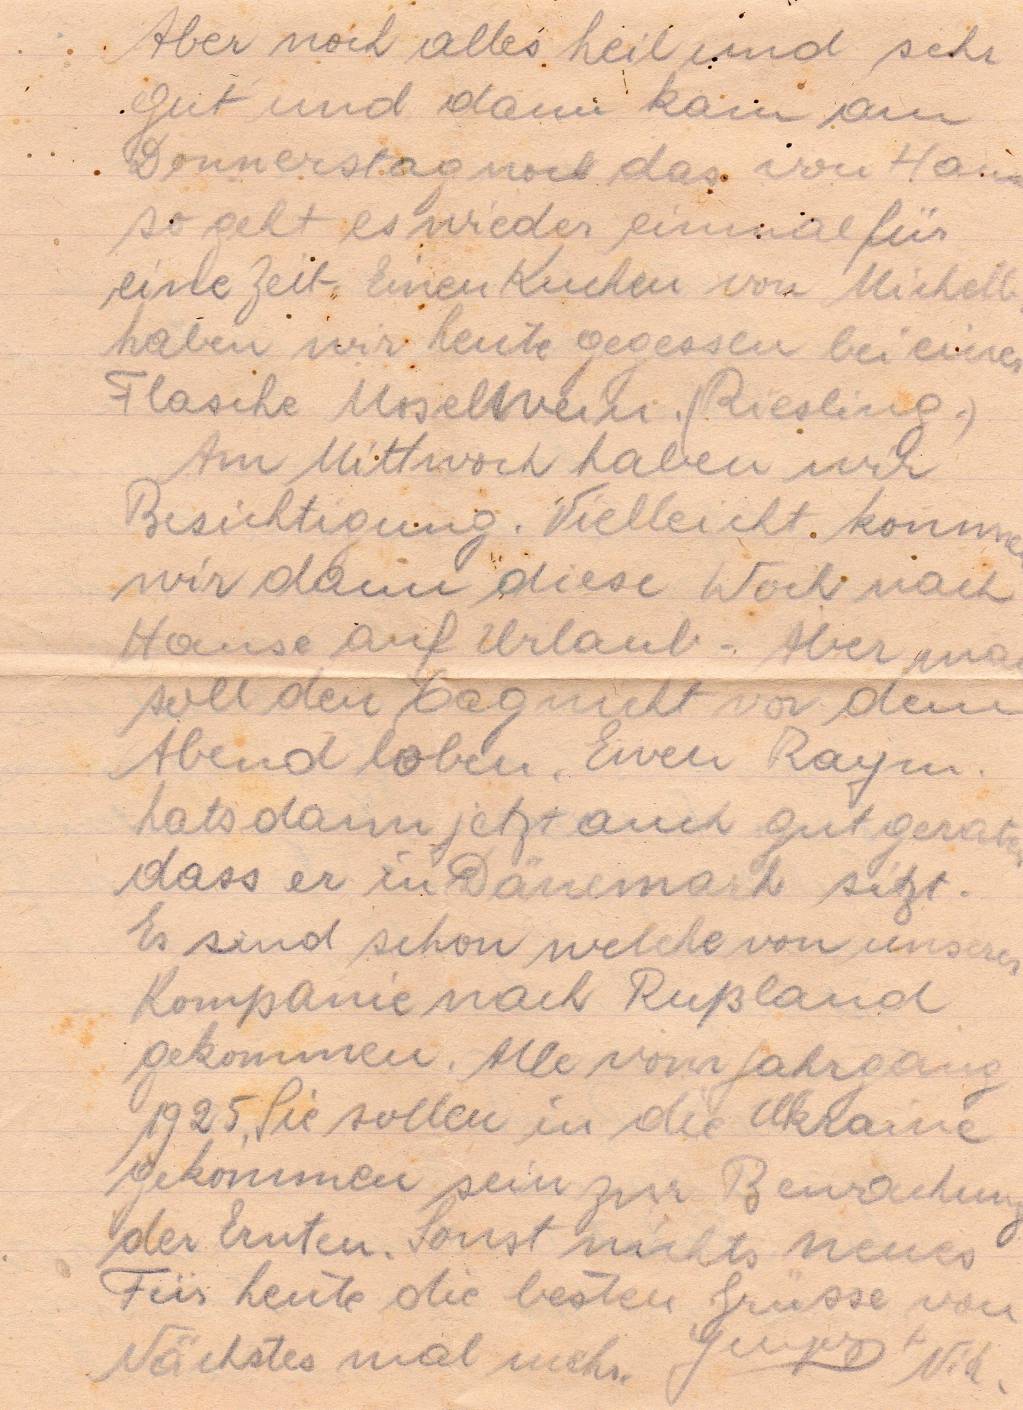 Aber noch alles heil und sehr
gut und dann kam am
Donnerstag noch das von
so geht es wieder einmal für
eine Zeit. Einen Kuchen von Michelb.
haben wir heute gegessen bei einer
Flasche Moselwein. (Riesling.)
Am Mittwoch haben wir
Besichtigung. Vielleicht kommen
wir dann diese Woch nach
Hause auf Urlaub - Aber man
soll den Tag nicht vor dem
Abend loben. Ewen Raym.
hats dann jetzt auch gut geraten
dass er in Dänemark sitzt.
Es sind schon welche von unserer
Kompanie nach Rußland
gekommen. Alle vom Jahrgang
1925. Sie sollen in die Ukraine
gekommen sein zur Bewachung
der Ernten. Sonst nichts neues
Für heute die besten Grüsse von
Nächstes mal mehr. Nik.